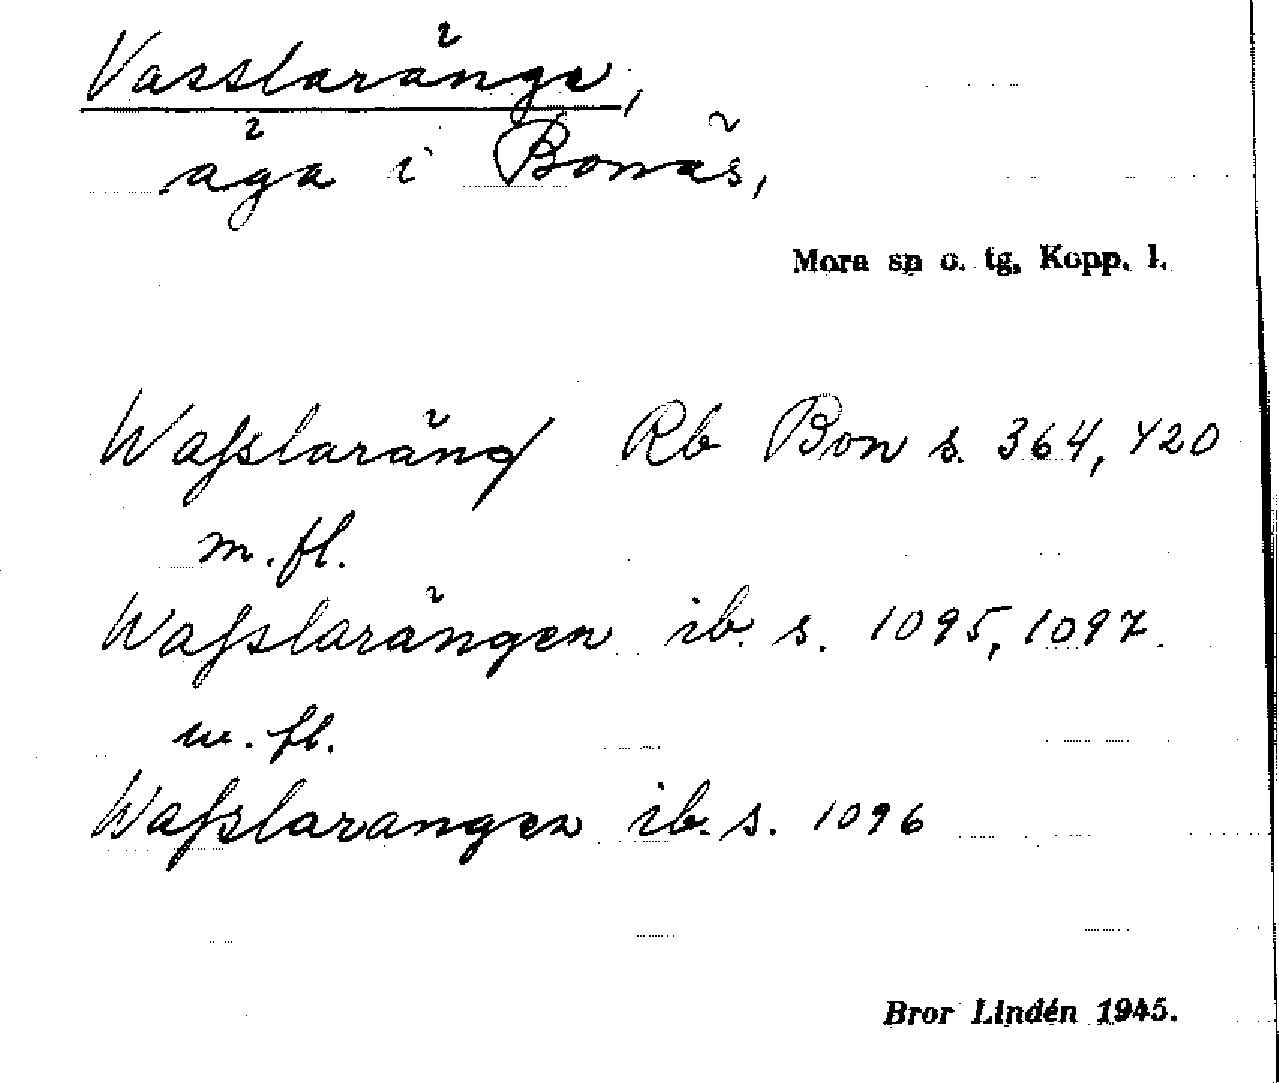 Vasslaränge,
äga i Bonäs,
Mora sn o. tg, Kopp. l.
Waſslaräng Rb Bon s. 364, 420
m.fl.
Waſslarängen ib. s. 1095, 1097.
m.fl.
Waſslarangen ib. s. 1096
Bror Lindén 1945.